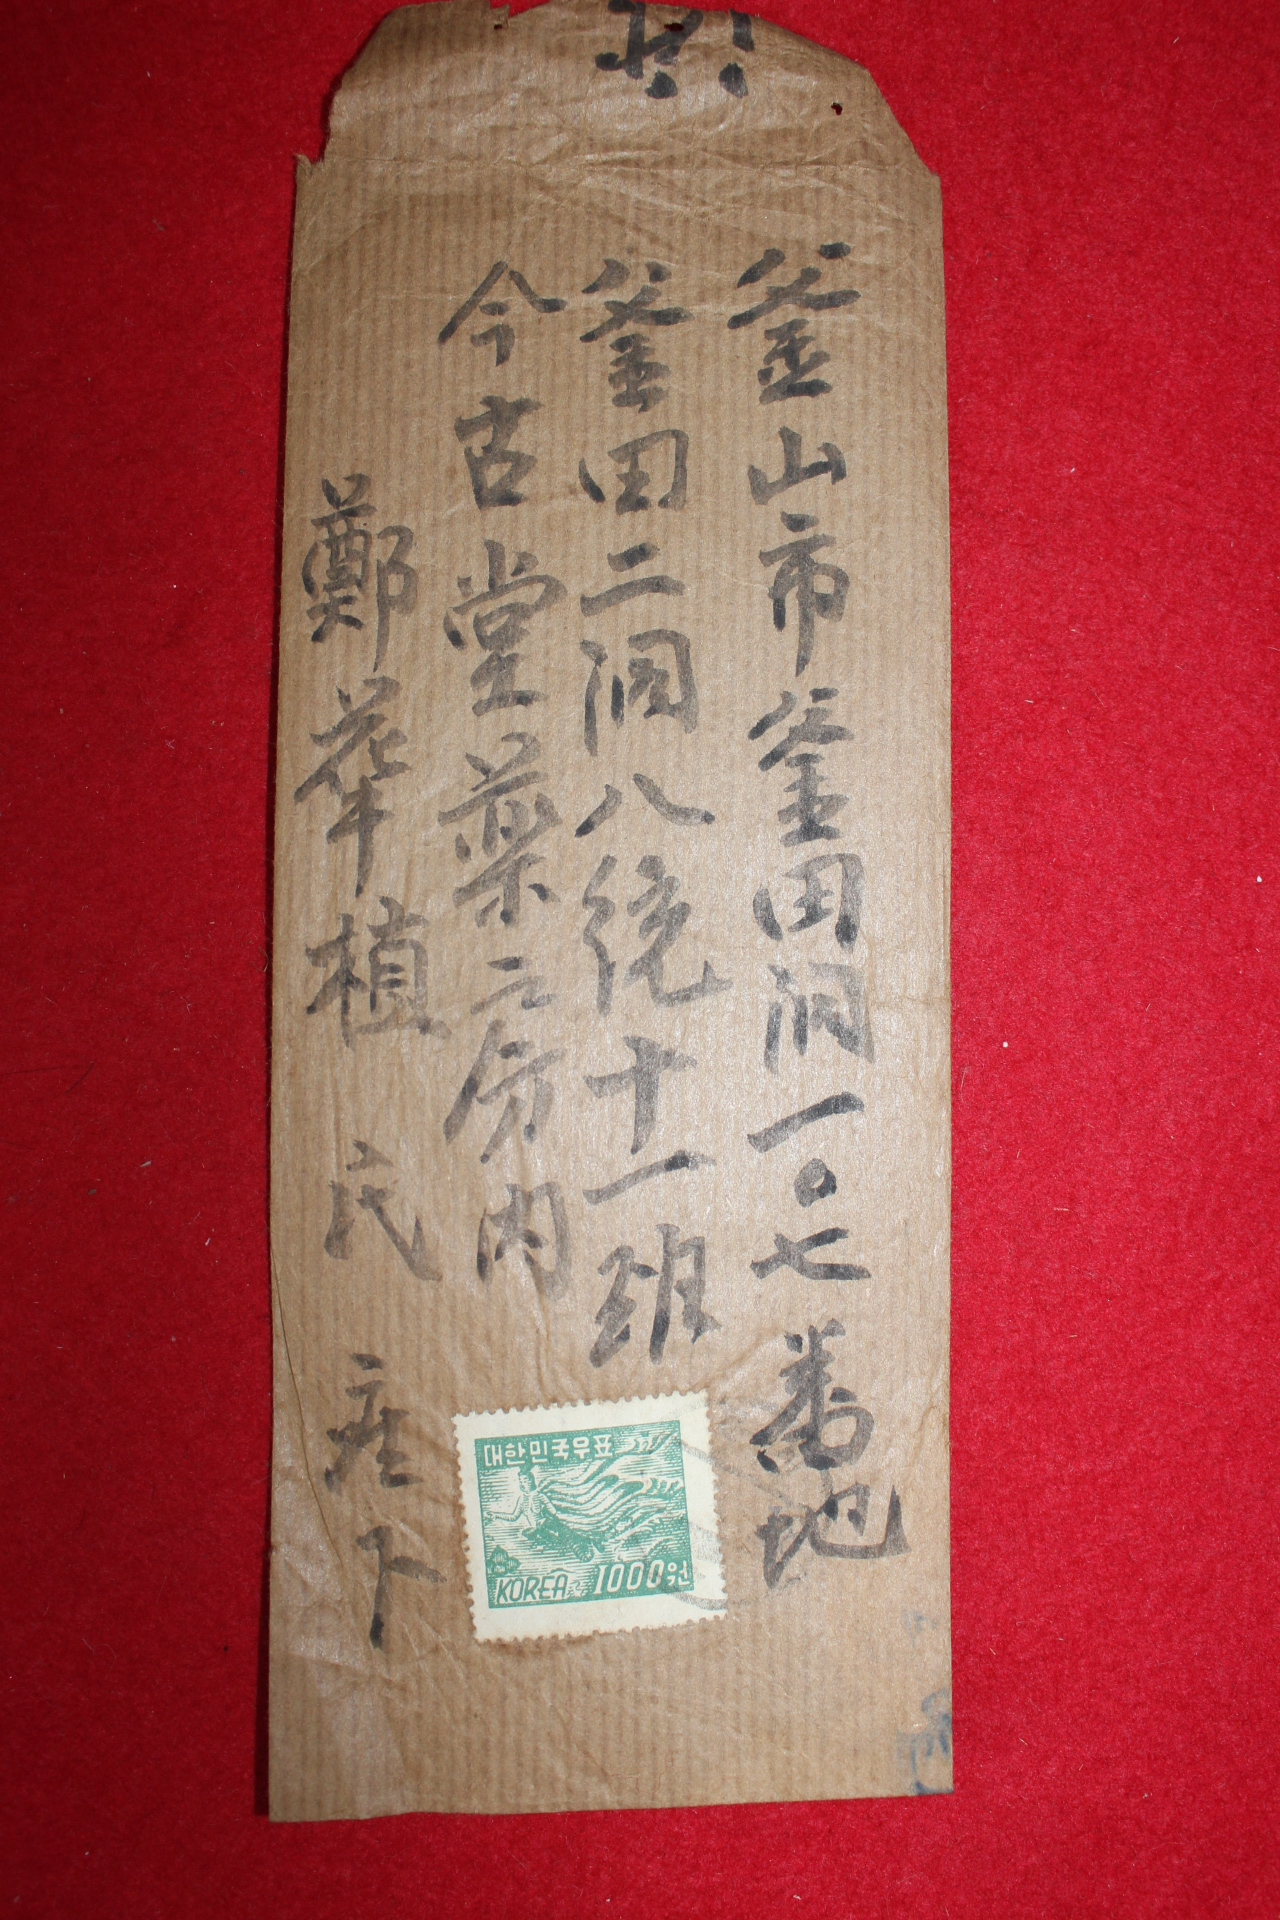 釜山市釜田洞一〇七番地
釜田二洞八統十一班
今古堂薬房内
鄭華植 氏 座下
대한민국우표
KOREA 1000원